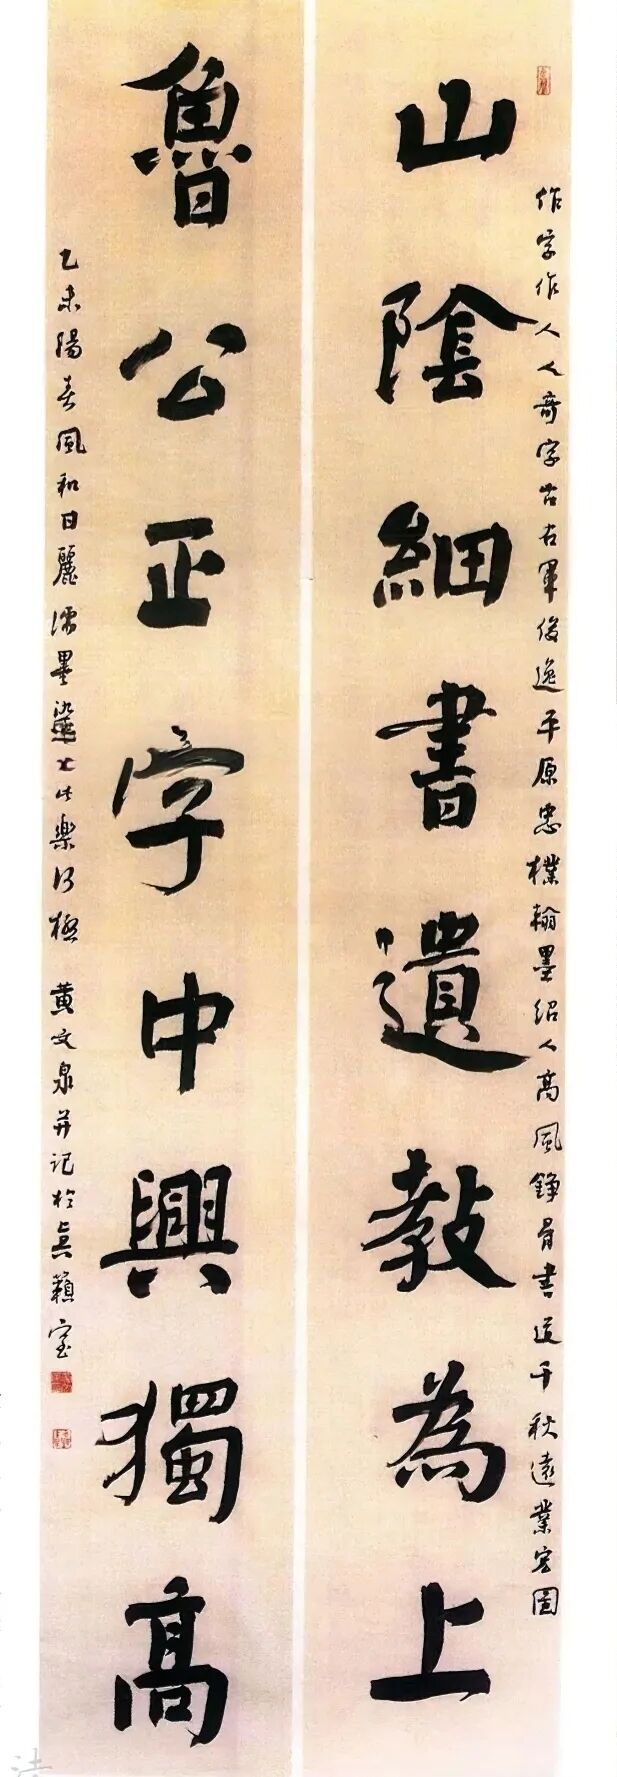 作字作人人奇字古右軍俊逸平原忠樸翰墨紹人高風錚骨書道千秋遠業宏圖
山陰細書遺教為上
魯公正字中興獨高
乙未陽春風和日麗濡墨染
樂
極 黃文泉并記於
籟室
法